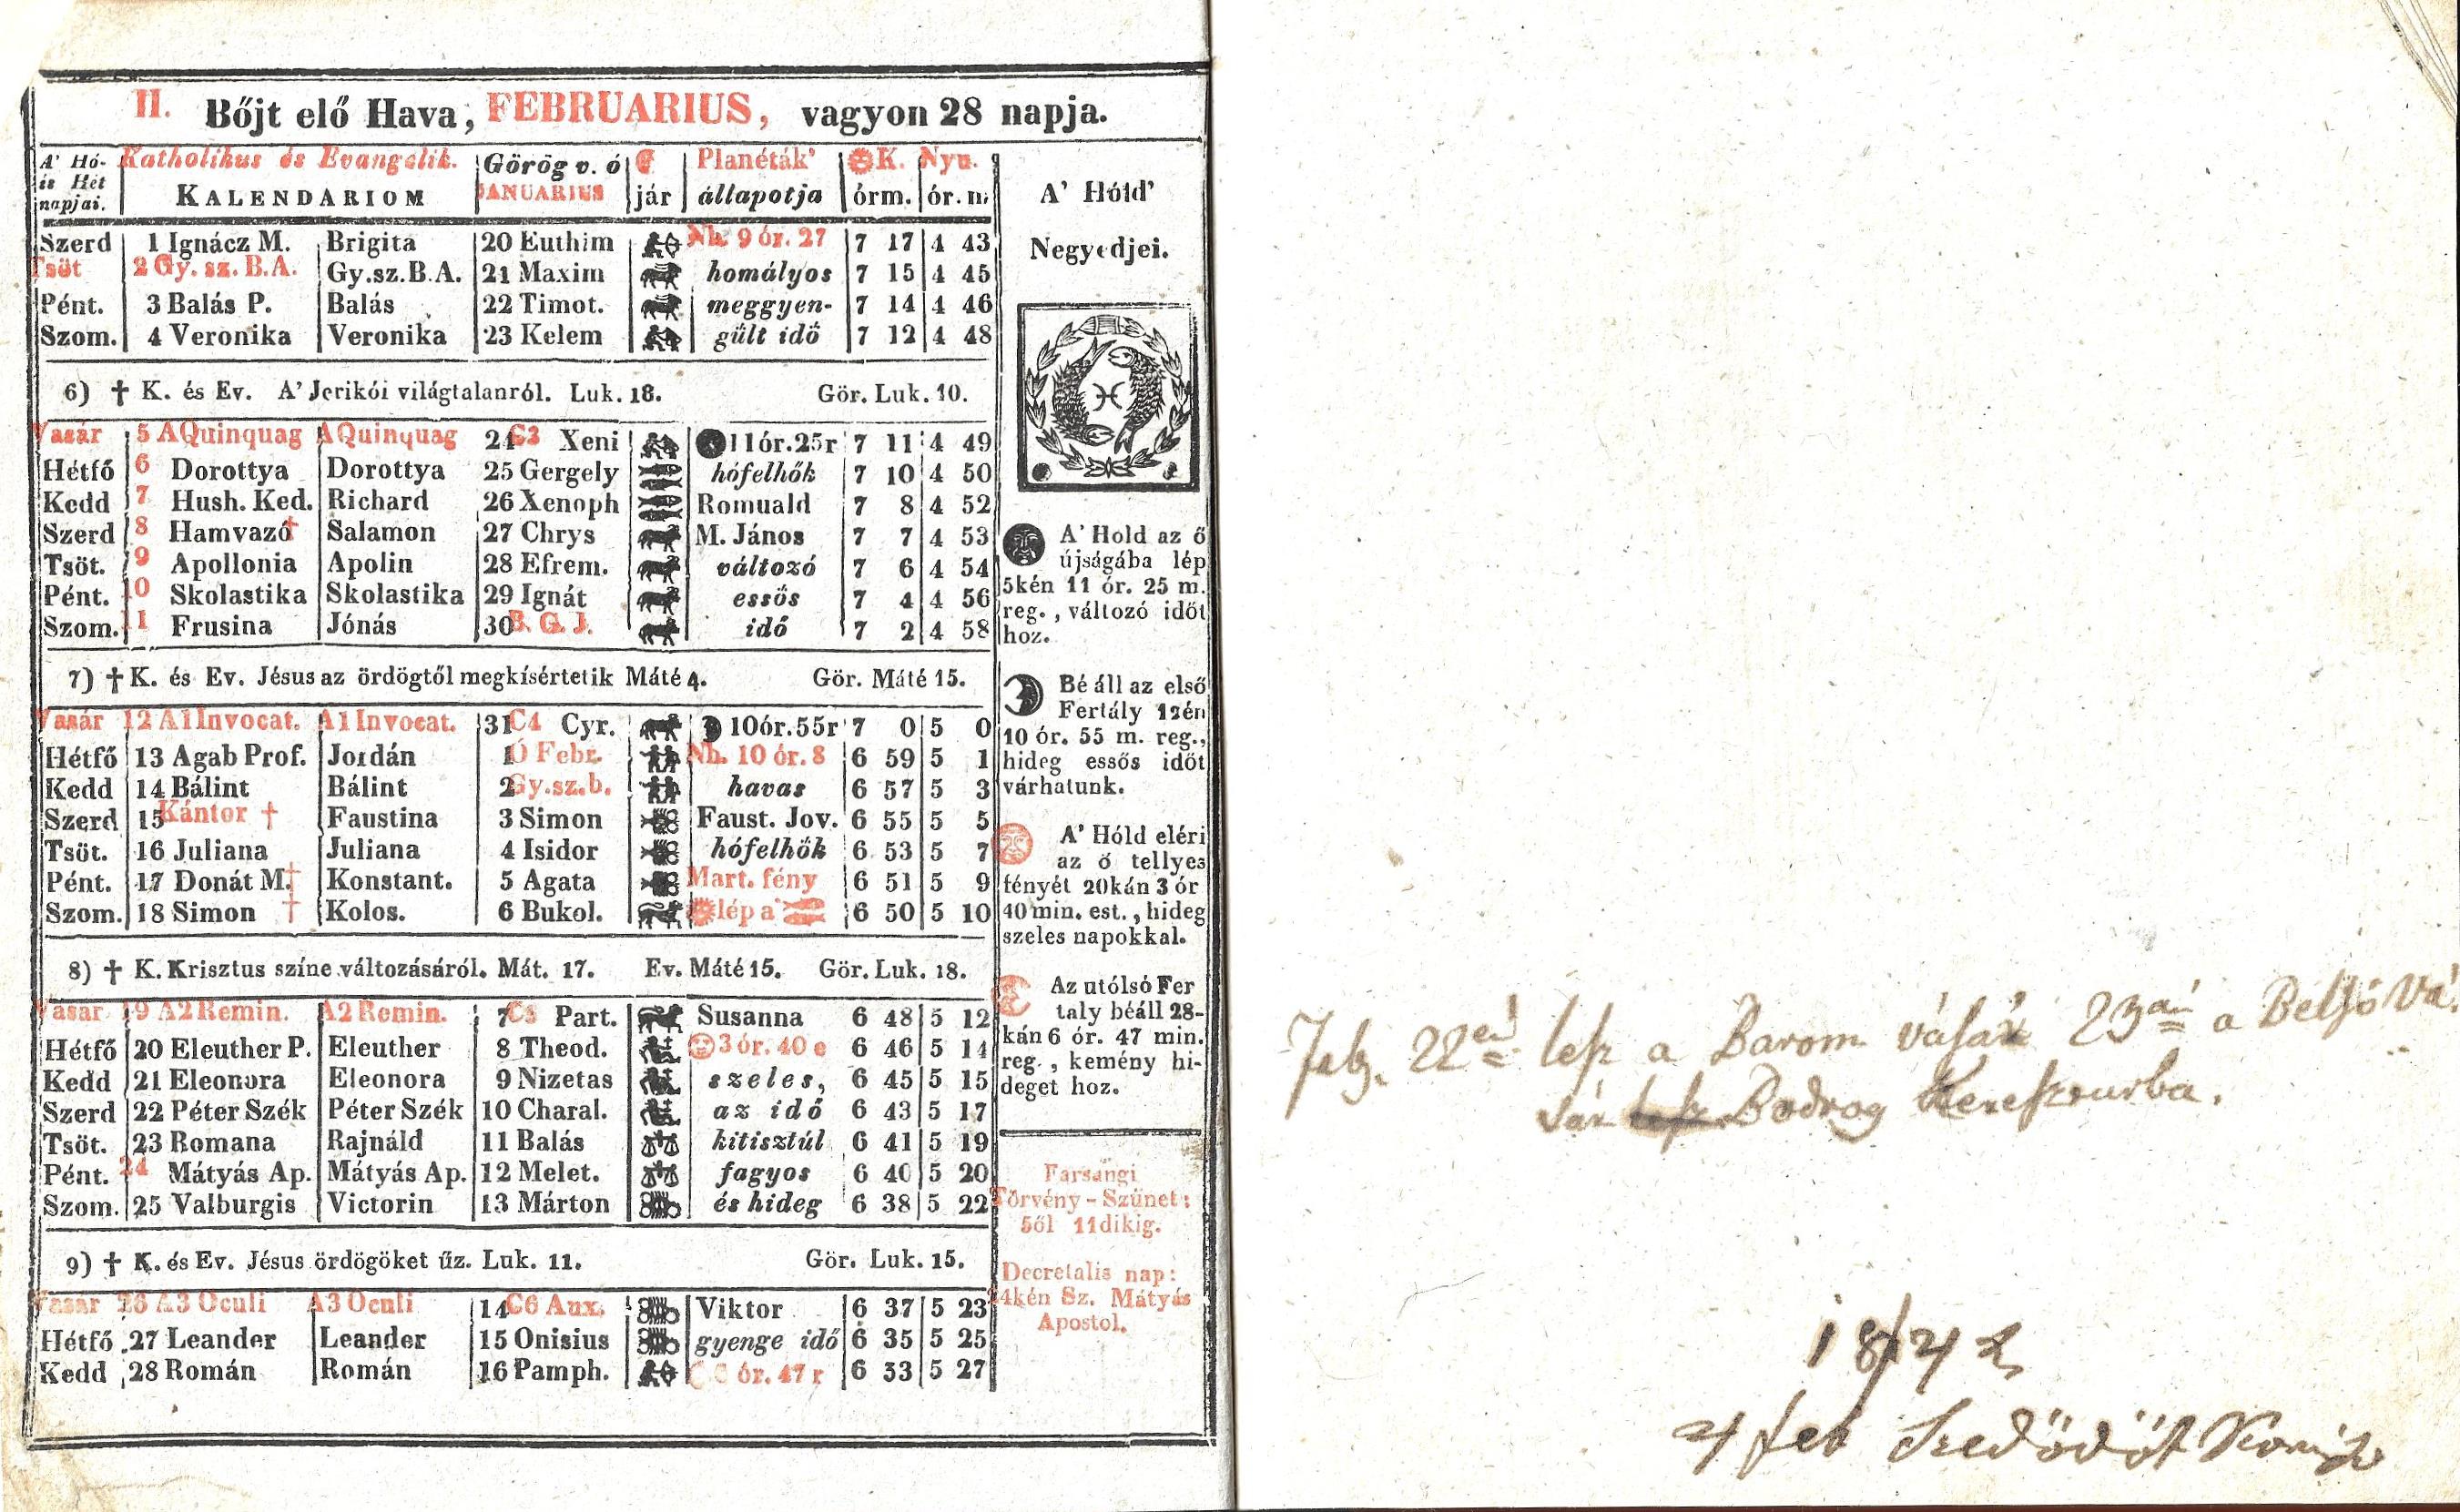 II. Bőjt elő Hava, FEBRUARIUS, vagyon 28 napja.
A' Hó- és Hét napjai. Katholikus és Evangelik. KALENDARIOM Görög v. ó JANUARIUS jár Planéták' állapotja K. órm. Nyu. ór. m.
Szerd 1 Ignácz M. Brigita 20 Euthim Nh. 9 ór. 27 7 17 4 43
Tsöt 2 Gy. sz. B.A. Gy.sz.B.A. 21 Maxim homályos 7 15 4 45
Pént. 3 Balás P. Balás 22 Timot. meggyen- 7 14 4 46
Szom. 4 Veronika Veronika 23 Kelem gült idő 7 12 4 48
6) † K. és Ev. A' Jerikói világtalanról. Luk. 18. Gör. Luk. 10.
Vasár 5 A Quinquag A Quinquag 24 C3 Xeni 11ór.25r 7 11 4 49
Hétfő 6 Dorottya Dorottya 25 Gergely hófelhők 7 10 4 50
Kedd 7 Hush. Ked. Richard 26 Xenoph Romuald 7 8 4 52
Szerd 8 Hamvazó † Salamon 27 Chrys M. János 7 7 4 53
Tsöt. 9 Apollonia Apolin 28 Efrem. változó 7 6 4 54
Pént. 10 Skolastika Skolastika 29 Ignát essős 7 4 4 56
Szom. 11 Frusina Jónás 30 B. G. J. idő 7 2 4 58
7) † K. és Ev. Jésus az ördögtől megkísértetik Máté 4. Gör. Máté 15.
Vasár 12 A1 Invocat. A1 Invocat. 31 C4 Cyr. 10ór.55r 7 0 5 0
Hétfő 13 Agab Prof. Jordán 1 Ó Febr. Nh. 10 ór. 8 6 59 5 1
Kedd 14 Bálint Bálint 2 Gy.sz.b. havas 6 57 5 3
Szerd 15 Kántor † Faustina 3 Simon Faust. Jov. 6 55 5 5
Tsöt. 16 Juliana Juliana 4 Isidor hófelhők 6 53 5 7
Pént. 17 Donát M. † Konstant. 5 Agata Mart. fény 6 51 5 9
Szom. 18 Simon † Kolos. 6 Bukol. lép a' 6 50 5 10
8) † K. Krisztus színe változásáról. Mát. 17. Ev. Máté 15. Gör. Luk. 18.
Vasar 19 A2 Remin. A2 Remin. 7 C5 Part. Susanna 6 48 5 12
Hétfő 20 Eleuther P. Eleuther 8 Theod. 3 ór. 40 e 6 46 5 14
Kedd 21 Eleonora Eleonora 9 Nizetas szeles, 6 45 5 15
Szerd 22 Péter Szék Péter Szék 10 Charal. az idő 6 43 5 17
Tsöt. 23 Romana Rajnáld 11 Balás kitisztúl 6 41 5 19
Pént. 24 Mátyás Ap. Mátyás Ap. 12 Melet. fagyos 6 40 5 20
Szom. 25 Valburgis Victorin 13 Márton és hideg 6 38 5 22
9) † K. és Ev. Jésus ördögöket űz. Luk. 11. Gör. Luk. 15.
Vasar 26 A3 Oculi A3 Oculi 14 C6 Aux. Viktor 6 37 5 23
Hétfő 27 Leander Leander 15 Onisius gyenge idő 6 35 5 25
Kedd 28 Román Román 16 Pamph. 6 ór. 47 r 6 33 5 27
A' Hóld'
Negyedjei.
A' Hold az ő
újságába lép
5kén 11 ór. 25 m.
reg., változó időt
hoz.
Bé áll az első
Fertály 12én
10 ór. 55 m. reg.,
hideg essős időt
várhatunk.
A' Hóld eléri
az ő tellyes
fényét 20kán 3 ór
40 min. est., hideg
szeles napokkal.
Az utólsó Fer
taly béáll 28-
kán 6 ór. 47 min.
reg., kemény hi-
deget hoz.
Farsangi
Törvény-Szünet:
5ől 11dikig.
Decretalis nap:
24kén Sz. Mátyás
Apostol.
Feb. 22én lesz a Barom vásár 23án a Belső Vá
sár Bodrog
1842
4 feb